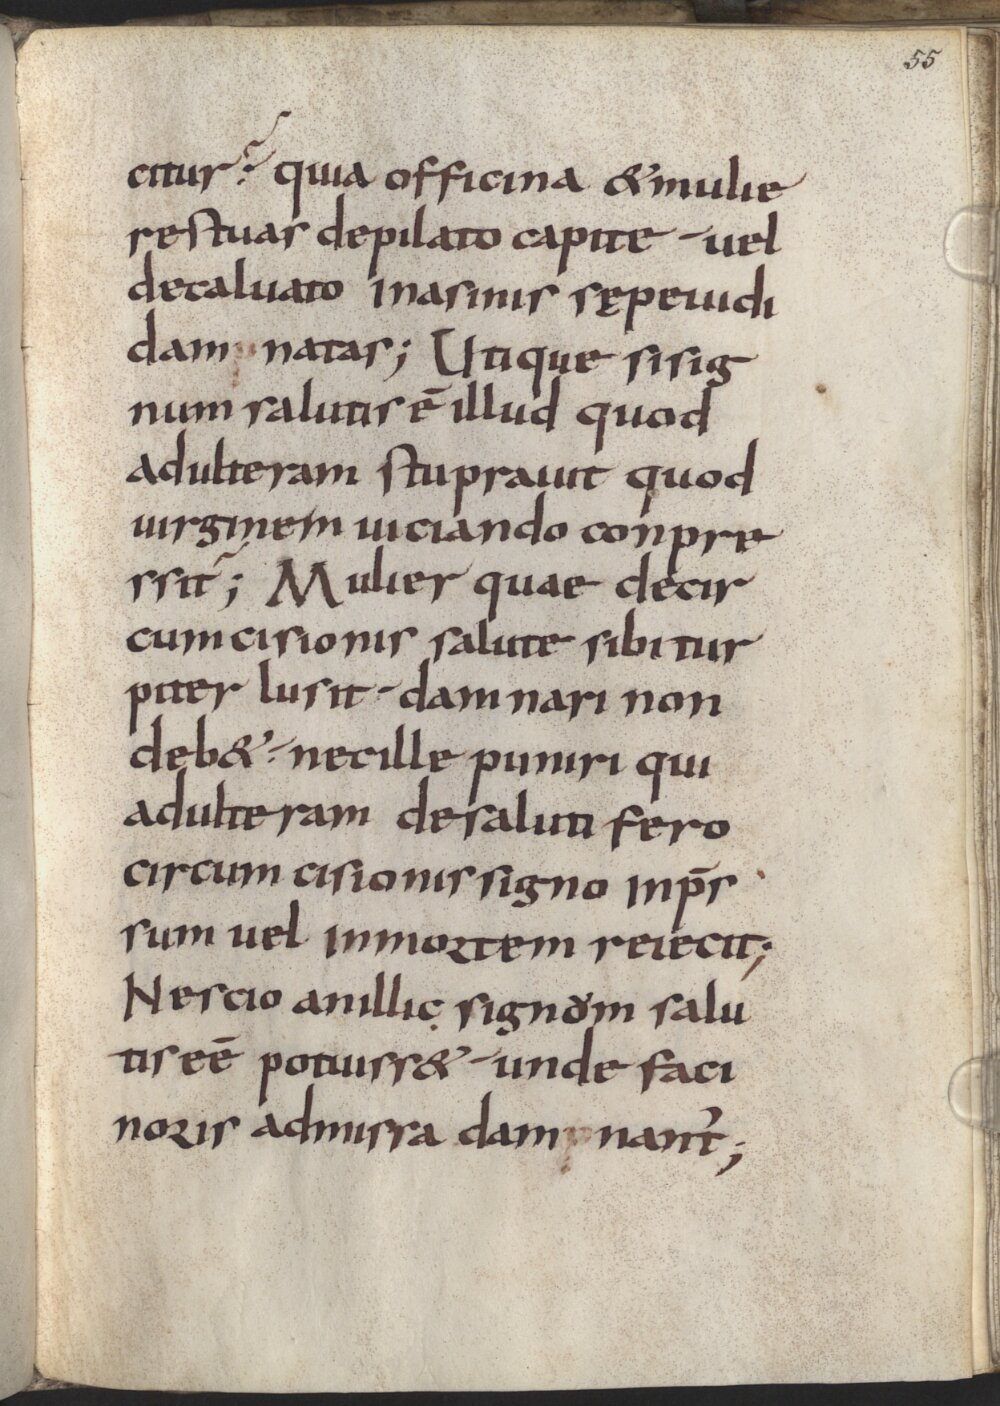 55
citur? quia officina &mulie
restuas depilato capite uel
decaluato inasinis sępeuidi
damnatas; Utique sisig
num salutis ē illud quod
adulteram stuprauit quod
uirginem uiciando conpre
ssit; Mulier quae decir
cumcisionis salute sibi tur
piter lusit damnari non
deb& necille puniri qui
adulteram desaluti fero
circumcisionis signo inp̄s
sum uel inmortem reiecit;
Nescio anillic signom salu
tis eē potuiss& unde faci
noris admissa damnant̓;